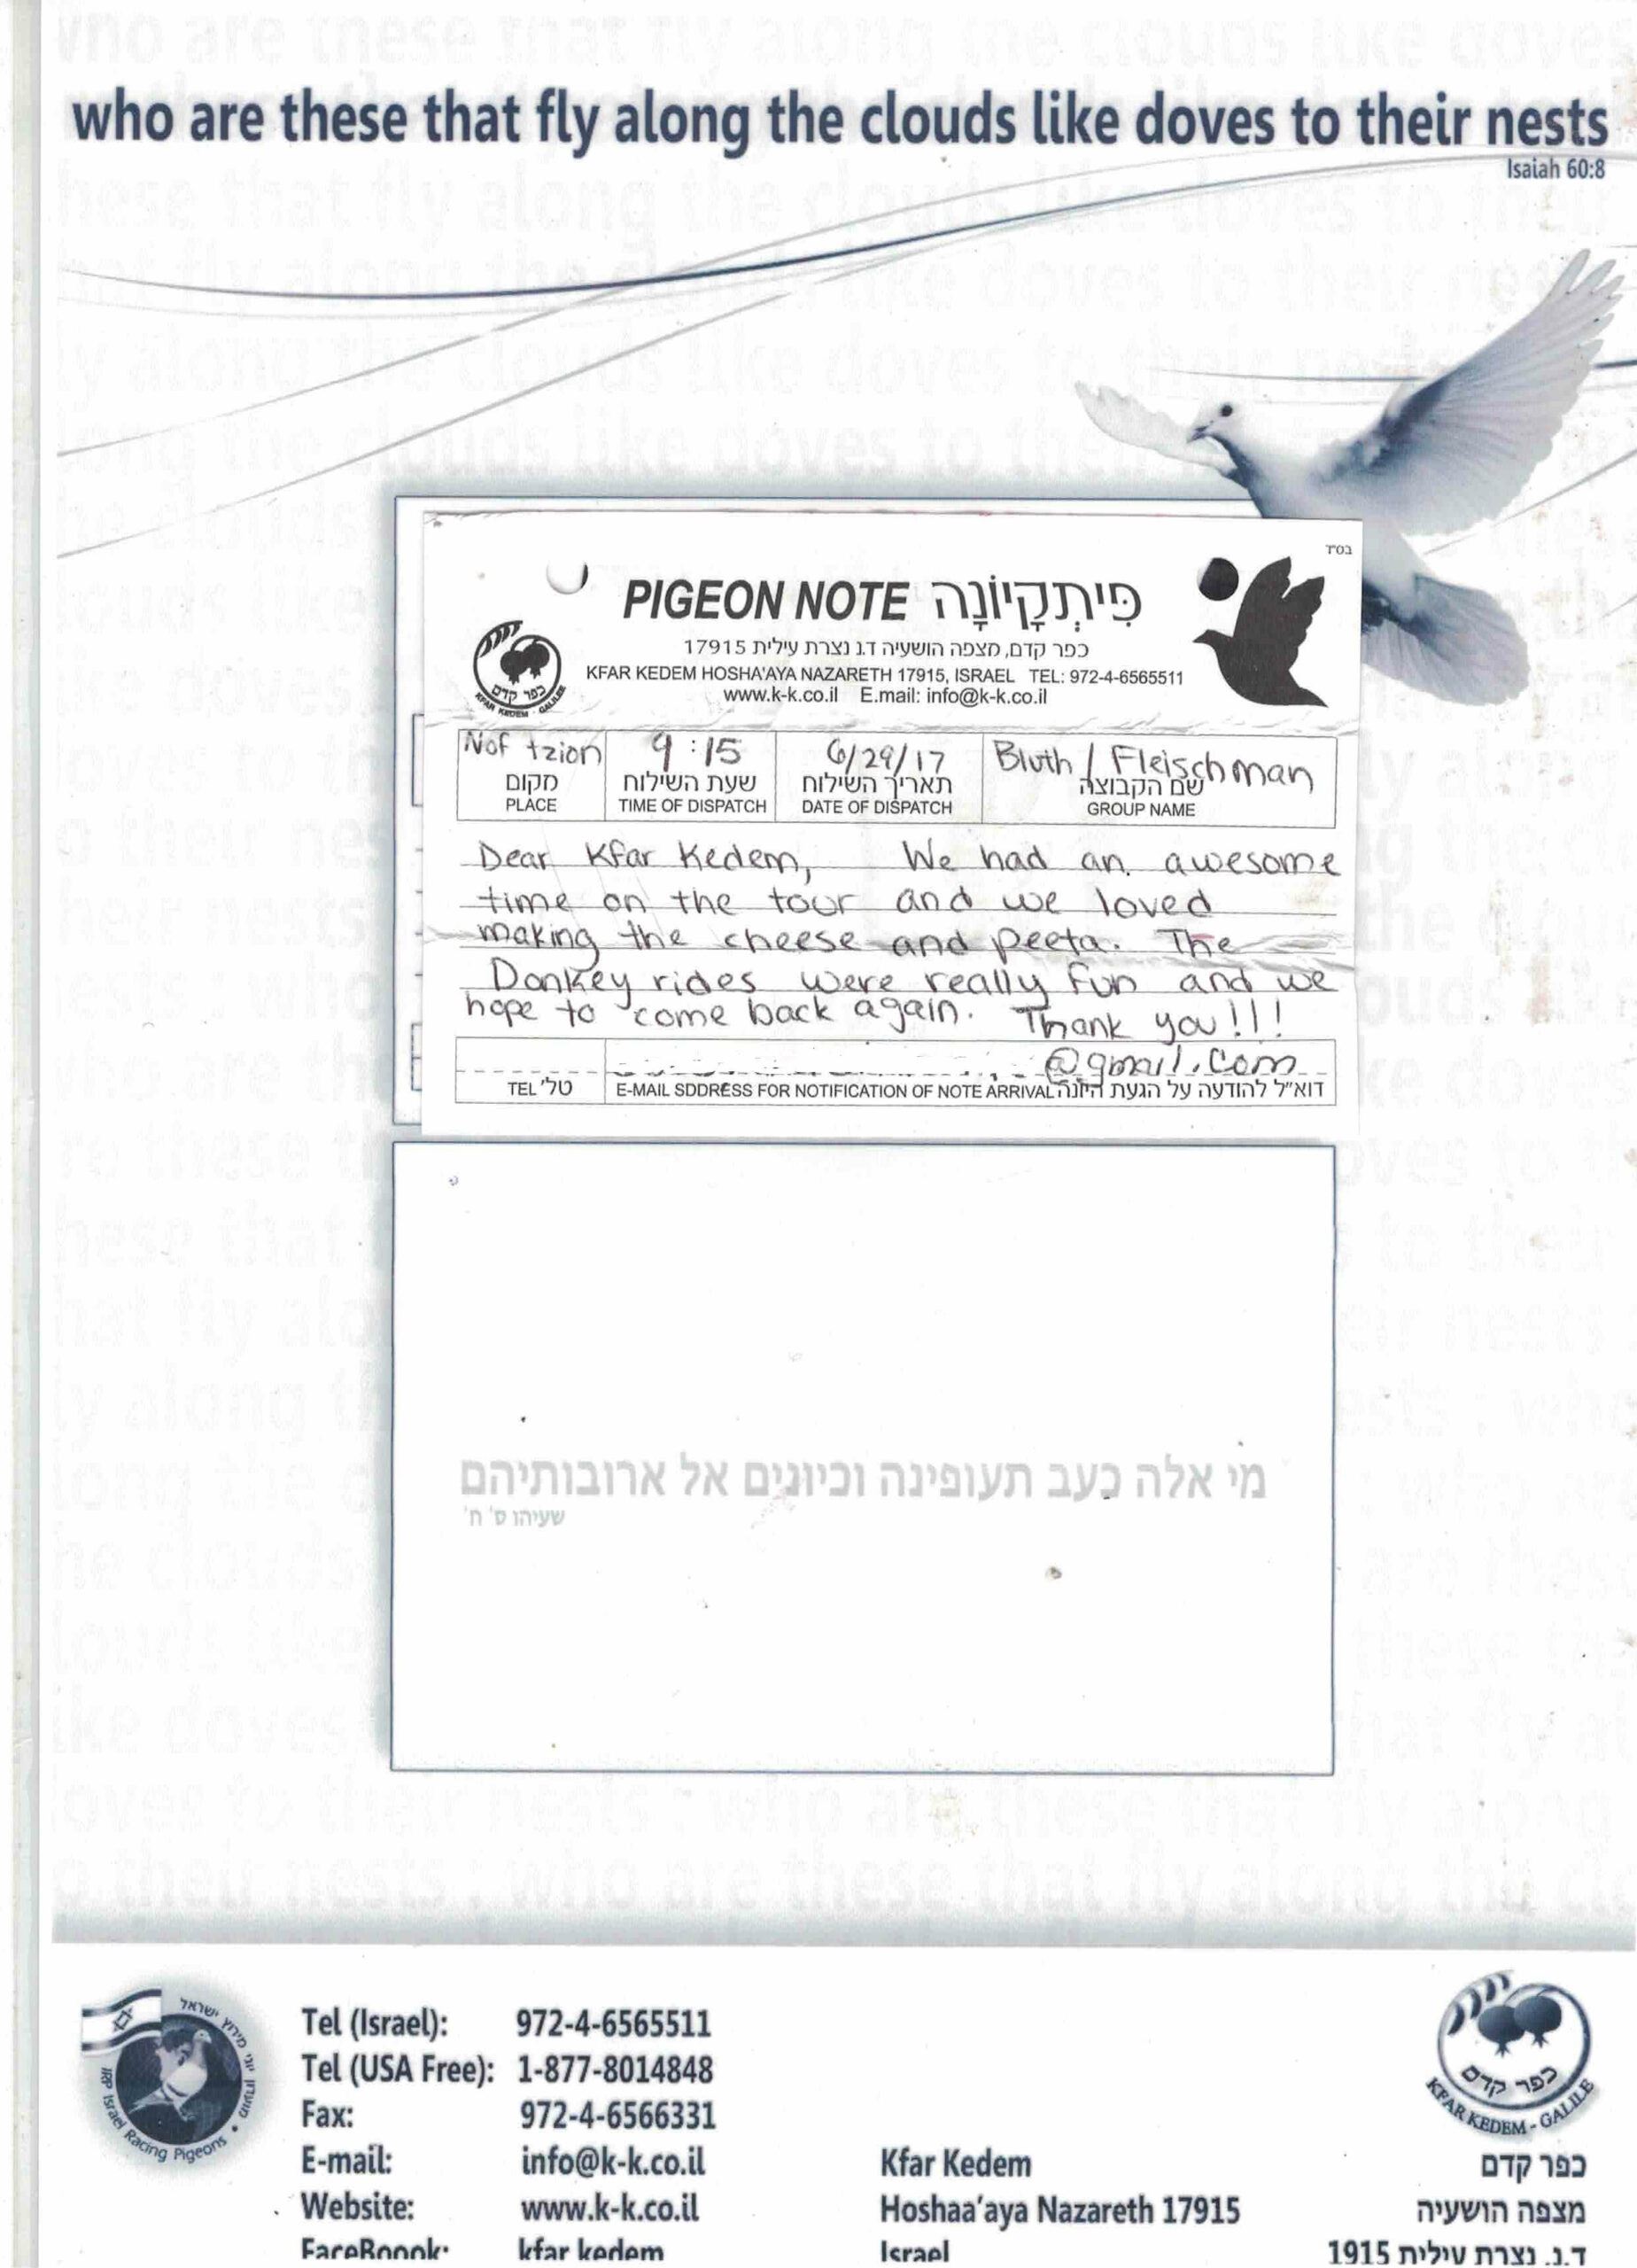 who are these that fly along the clouds like doves to their nests
Isaiah 60:8
בס"ד
PIGEON NOTE פִּיתְקָיוֹנָה
כפר קדם, מצפה הושעיה ד.נ נצרת עילית 17915
KFAR KEDEM HOSHA'AYA NAZARETH 17915, ISRAEL TEL: 972-4-6565511
www.k-k.co.il E.mail: info@k-k.co.il
כפר קדם
KFAR KEDEM - GALILEE
Nof tzion 9:15 6/29/17 Bluth / Fleischman
מקום שעת השילוח תאריך השילוח שם הקבוצה
PLACE TIME OF DISPATCH DATE OF DISPATCH GROUP NAME
Dear Kfar Kedem, We had an awesome
time on the tour and we loved
making the cheese and peeta. The
Donkey rides were really fun and we
hope to come back again. Thank you!!!
@gmail.com
TEL טל' E-MAIL SDDRESS FOR NOTIFICATION OF NOTE ARRIVAL דוא"ל להודעה על הגעת היונה
מי אלה כעב תעופינה וכיונים אל ארובותיהם
שעיהו ס' ח'
יוני מירוץ ישראל
IRP Israel Racing Pigeons
Tel (Israel): 972-4-6565511
Tel (USA Free): 1-877-8014848
Fax: 972-4-6566331
E-mail: info@k-k.co.il
Website: www.k-k.co.il
FaceBoook: kfar kedem
Kfar Kedem
Hoshaa'aya Nazareth 17915
Israel
כפר קדם
KFAR KEDEM - GALILEE
כפר קדם
מצפה הושעיה
ד.נ. נצרת עילית 1915